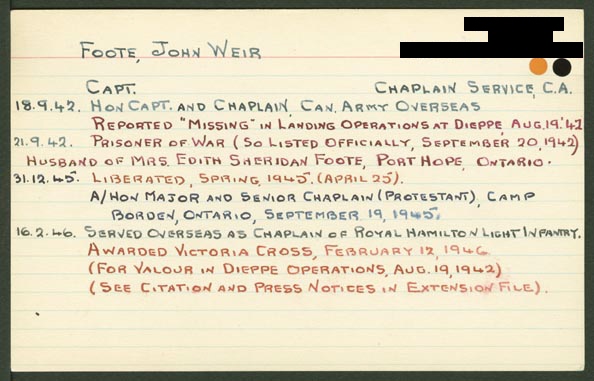 FOOTE, JOHN WEIR
CAPT. CHAPLAIN SERVICE, C.A.
18.9.42. HON CAPT. AND CHAPLAIN, CAN. ARMY OVERSEAS
REPORTED "MISSING" IN LANDING OPERATIONS AT DIEPPE, AUG. 19. '42
21.9.42. PRISONER OF WAR (SO LISTED OFFICIALLY, SEPTEMBER 20, 1942)
HUSBAND OF MRS. EDITH SHERIDAN FOOTE, PORT HOPE, ONTARIO.
31.12.45. LIBERATED, SPRING, 1945. (APRIL 25).
A/HON MAJOR AND SENIOR CHAPLAIN (PROTESTANT), CAMP
BORDEN, ONTARIO, SEPTEMBER 19, 1945.
16.2.46. SERVED OVERSEAS AS CHAPLAIN OF ROYAL HAMILTON LIGHT INFANTRY.
AWARDED VICTORIA CROSS, FEBRUARY 12, 1946
(FOR VALOUR IN DIEPPE OPERATIONS, AUG. 19, 1942)
(SEE CITATION AND PRESS NOTICES IN EXTENSION FILE).